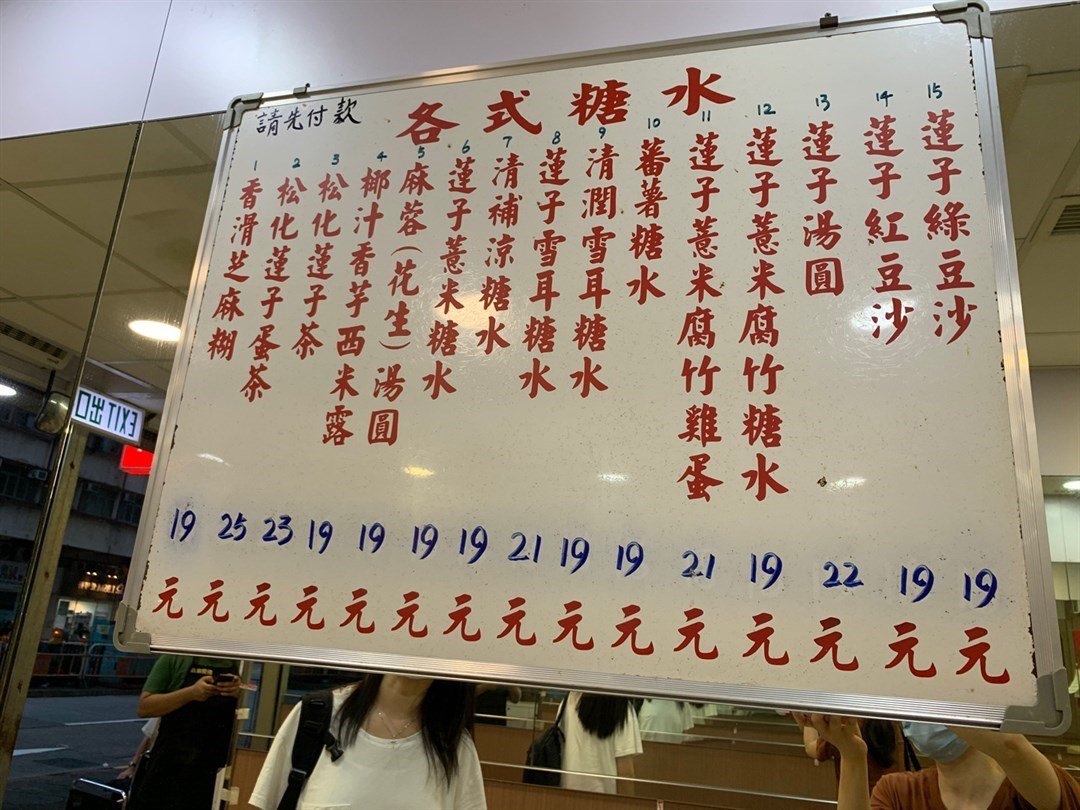 請先付款
各式糖水
1 香滑芝麻糊 19元
2 松化蓮子蛋茶 25元
3 松化蓮子茶 23元
4 椰汁香芋西米露 19元
5 麻蓉(花生)湯圓 19元
6 蓮子薏米糖水 19元
7 清補涼糖水 19元
8 蓮子雪耳糖水 21元
9 清潤雪耳糖水 19元
10 蕃薯糖水 19元
11 蓮子薏米腐竹雞蛋 21元
12 蓮子薏米腐竹糖水 19元
13 蓮子湯圓 22元
14 蓮子紅豆沙 19元
15 蓮子綠豆沙 19元
EXIT 出口